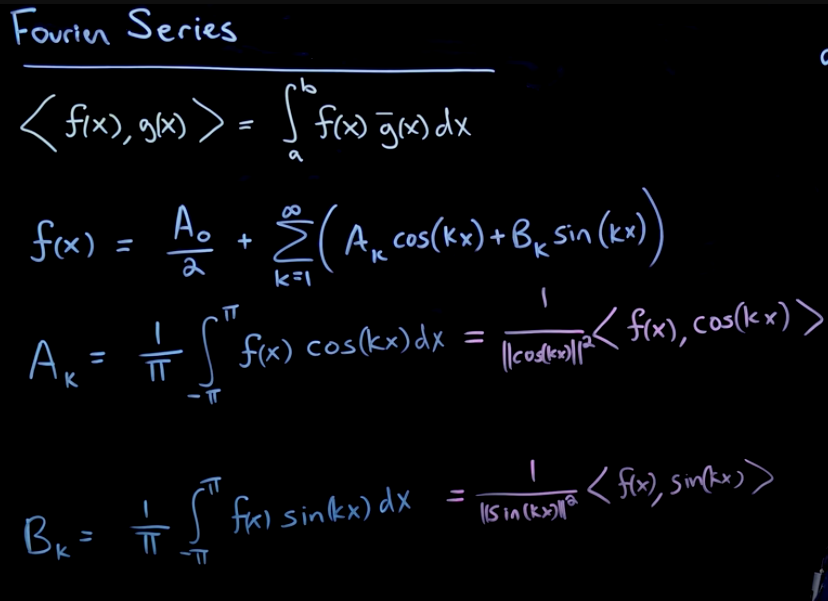 Fourier Series
< f(x), g(x) > = ∫_a^b f(x) ḡ(x) dx
f(x) = A₀/2 + ∑_{k=1}^{∞} ( A_k cos(kx) + B_k sin(kx) )
A_k = 1/π ∫_{-π}^{π} f(x) cos(kx) dx = 1/||cos(kx)||² < f(x), cos(kx) >
B_k = 1/π ∫_{-π}^{π} f(x) sin(kx) dx = 1/||sin(kx)||² < f(x), sin(kx) >